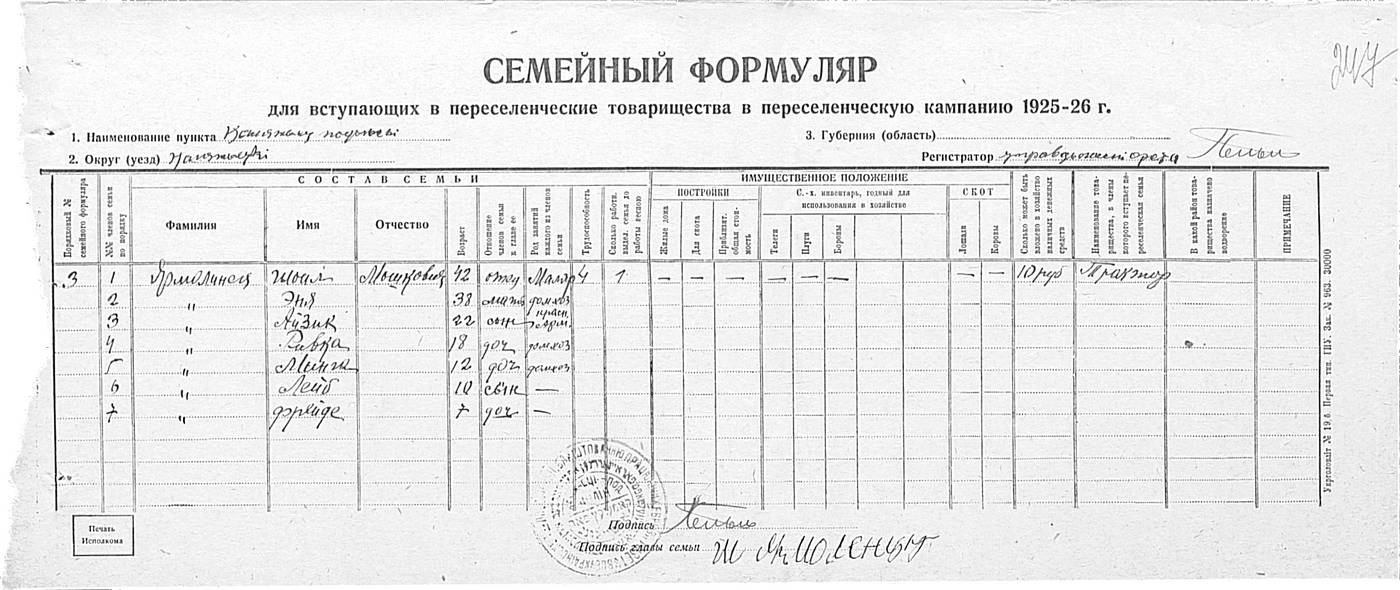 247
СЕМЕЙНЫЙ ФОРМУЛЯР
для вступающих в переселенческие товарищества в переселенческую кампанию 1925-26 г.
1. Наименование пункта
3. Губерния (область)
2. Округ (уезд)
Регистратор
СОСТАВ СЕМЬИ
ИМУЩЕСТВЕННОЕ ПОЛОЖЕНИЕ
Порядковый № семейного формуляра
№№ членов семьи по порядку
Фамилия
Имя
Отчество
Возраст
Отношение членов семьи к главе ее
Род занятий каждого из членов семьи
Трудоспособность
Сколько работн. выдел. семья до работы весною
ПОСТРОЙКИ
Жилые дома
Для скота
Приблизит. общая стоимость
С.-х. инвентарь, годный для использования в хозяйстве
Телеги
Плуги
Бороны
СКОТ
Лошади
Коровы
Сколько может быть вложено в хозяйство наличных денежных средств
Наименование товарищества, в члены которого вступает переселенческая семья
В какой район товарищества назначено водворение
ПРИМЕЧАНИЕ
3 1 Ярмолинец Шоил Мошкович 42 отец Маляр 4 1 — — — — — — — — 10 руб Трактор
2 " Эня 38 мать домхоз
3 " Айзик 22 сын красн. арм.
4 " Ривка 18 доч домхоз
5 " Минця 12 доч домхоз
6 " Лейб 10 сын —
7 " Фрейде 7 доч —
Печать Исполкома
Подпись
Подпись главы семьи Ш Ярмоленцът
Укрголовліт № 19.6. Первая тип. ГПУ. Зак. № 963. 30000